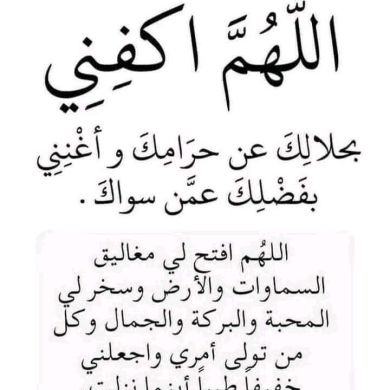 اللَّهُمَّ اكفِنِي
بحلالِكَ عن حرَامِكَ و أغْنِنِي
بفَضْلِكَ عمَّن سواكَ .
اللهُم افتح لي مغاليق
السماوات والأرض وسخر لي
المحبة والبركة والجمال وكل
من تولى أمري واجعلني
خفيفاً طيباً أينما نزلت